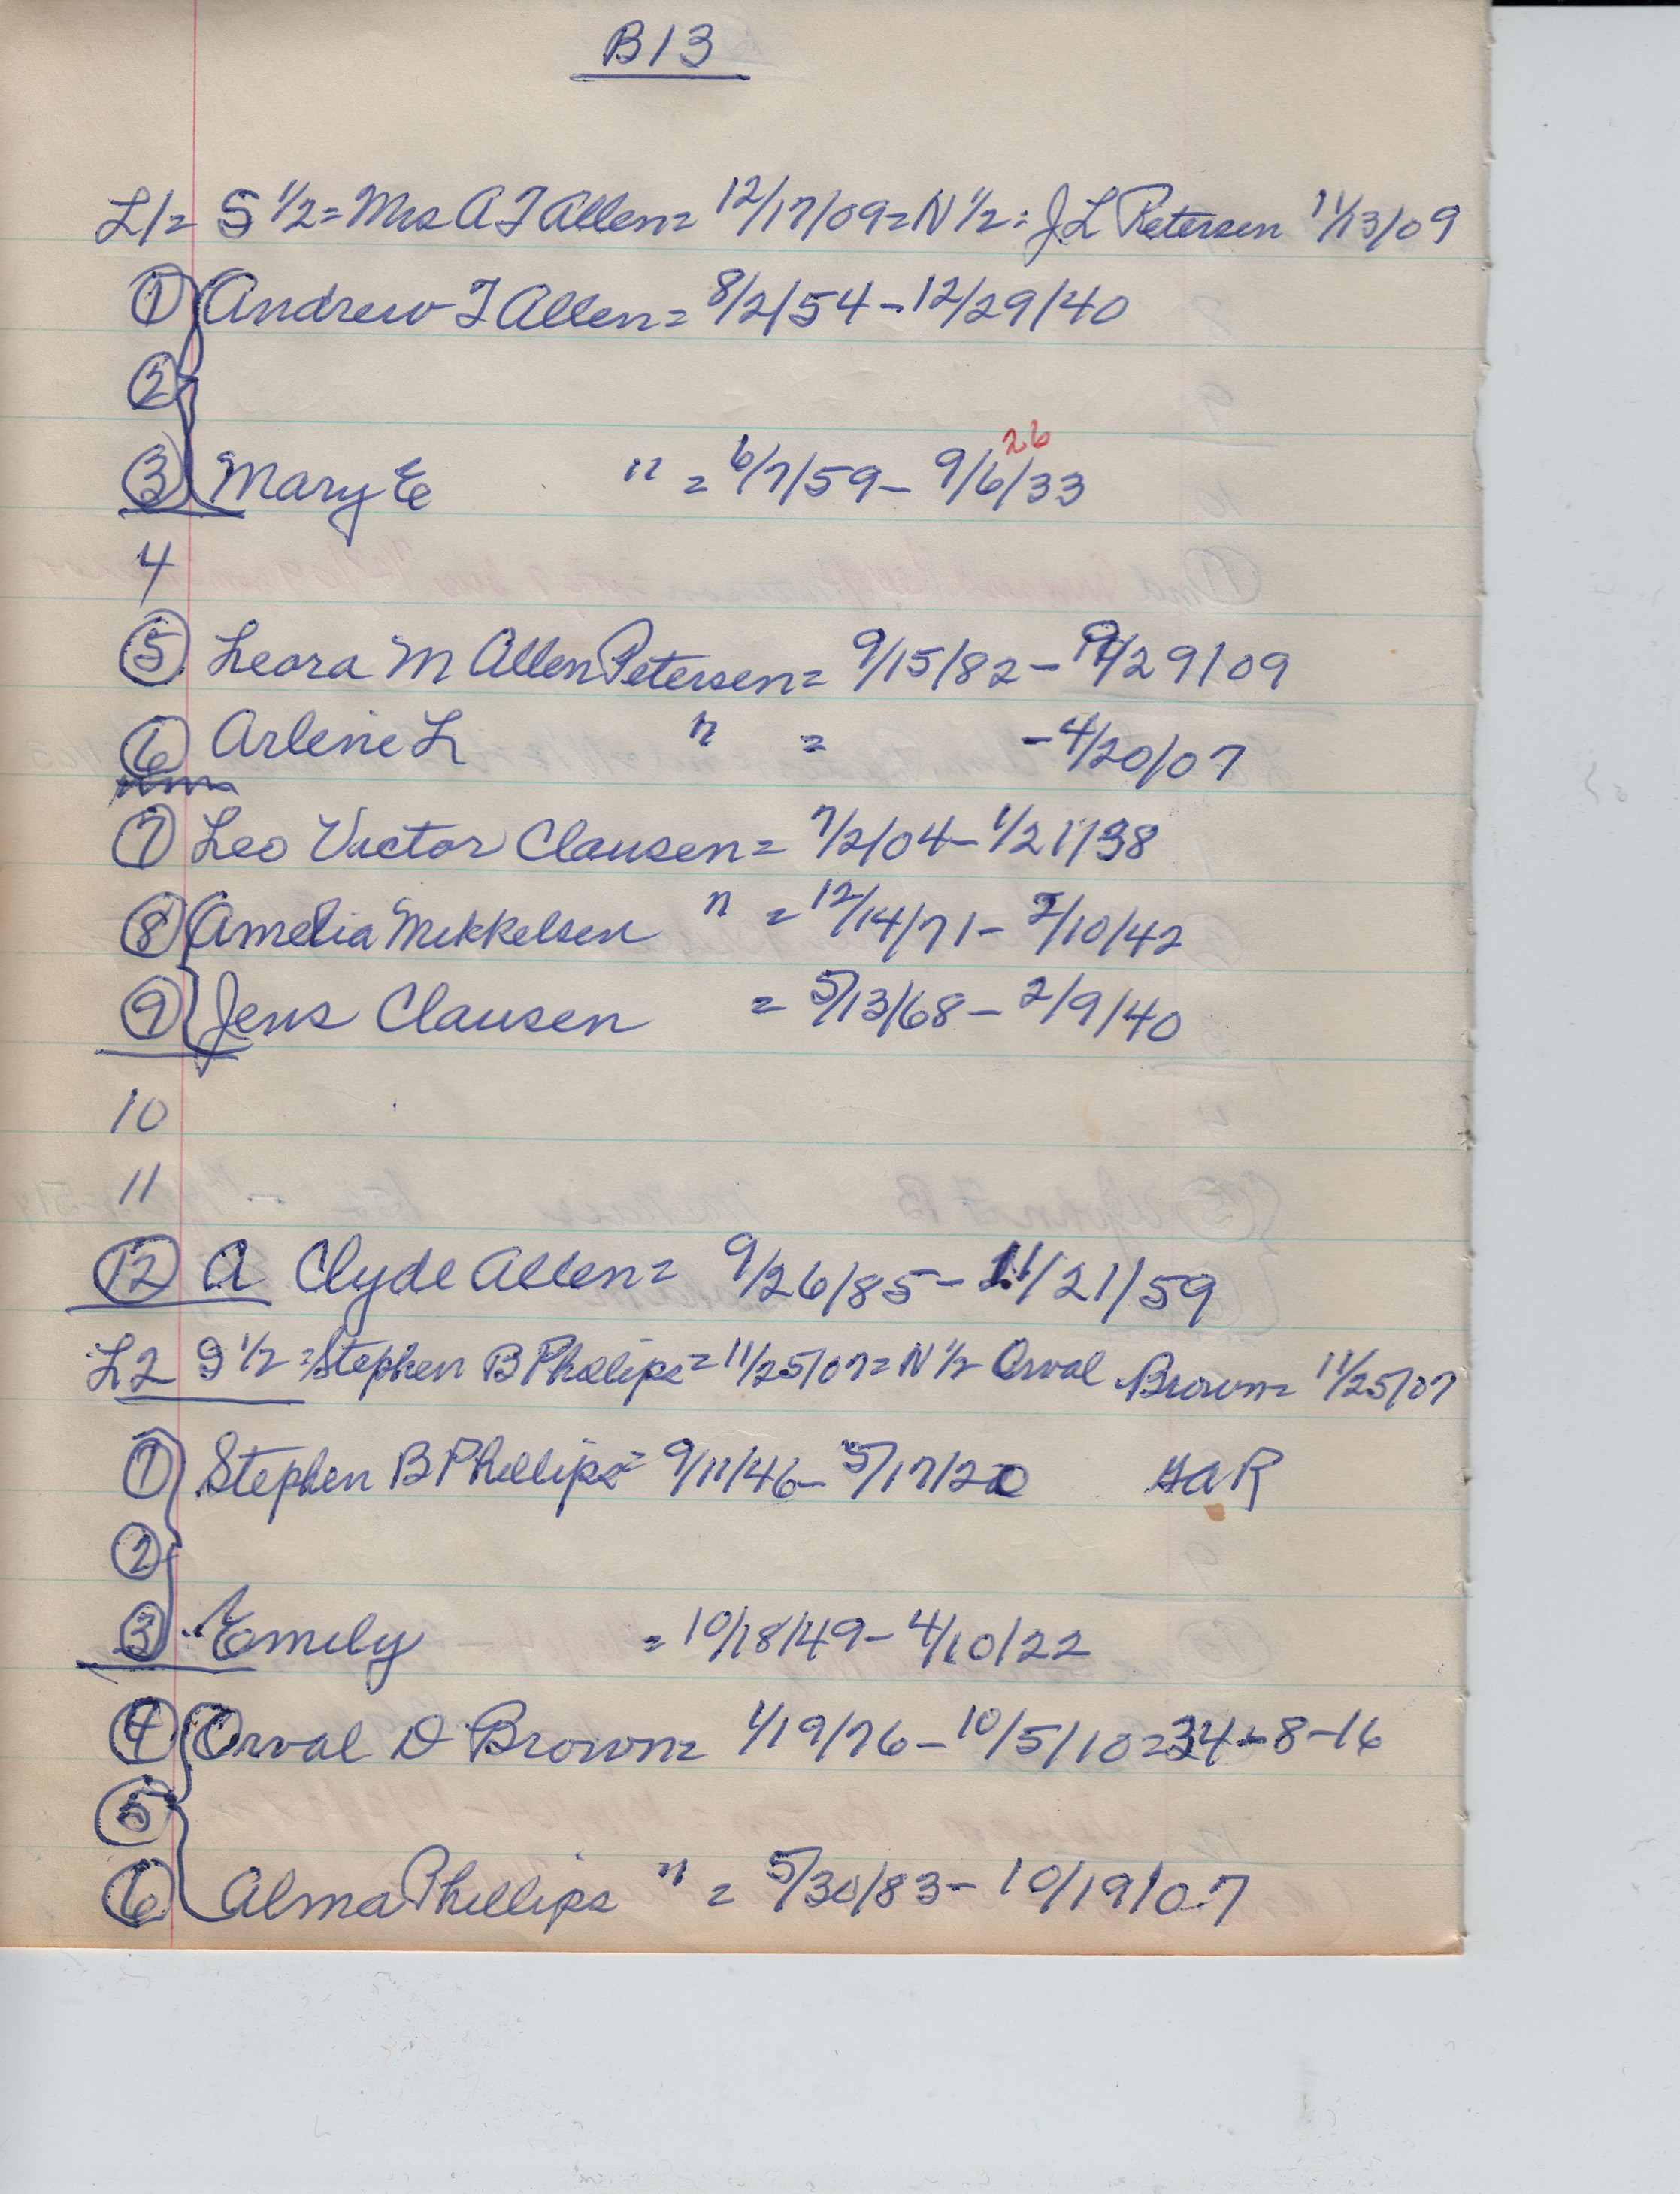 B13
L1= S 1/2= Mrs A T Allen= 12/17/09= N 1/2= J L Petersen 11/13/09
1 Andrew T Allen= 8/2/54 - 12/29/40
2
26
3 Mary E " = 6/7/59 - 9/6/33
4
5 Leora M Allen Petersen= 9/15/82 - 9/29/09
6 Arlene L " = - 4/20/07
7 Leo Victor Clausen= 7/2/04 - 1/21/38
8 Amelia Mikkelsen " = 12/14/71 - 2/10/42
9 Jens Clausen = 5/13/68 - 2/9/40
10
11
12 A Clyde Allen= 9/26/85 - 11/21/59
L2 S 1/2 = Stephen B Phillips = 11/25/07= N 1/2 Orval Brown= 11/25/07
1 Stephen B Phillips = 9/11/46 - 5/17/20 GAR
2
3 Emily = 10/18/49 - 4/10/22
4 Orval D Brown= 1/19/76 - 10/5/10 = 34-8-16
5
6 Alma Phillips " = 5/30/83 - 10/19/07